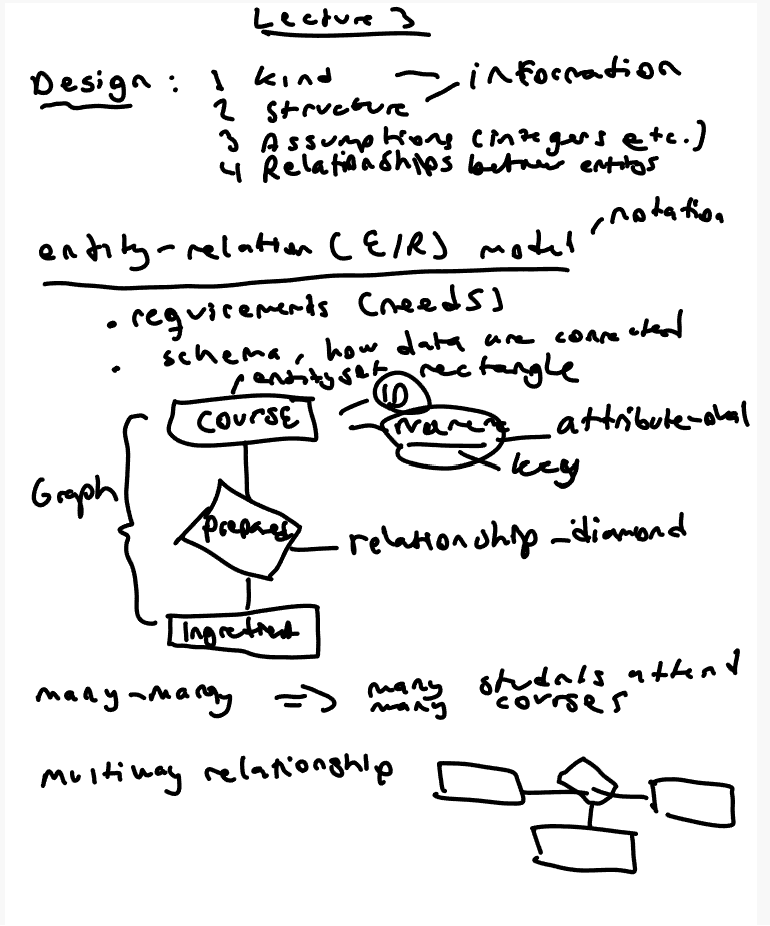 Lecture 3
Design : 1 kind — information
2 structure
3 Assumptions (integers etc.)
4 Relationships between entities
entity-relation (E/R) model , notation
• requirements (needs)
• schema, how data are connected
, entity set rectangle
ID
course
Name
attribute-oval
key
Graph
prepared
relationship - diamond
Ingredient
many-many => many students attend
many courses
Multiway relationship